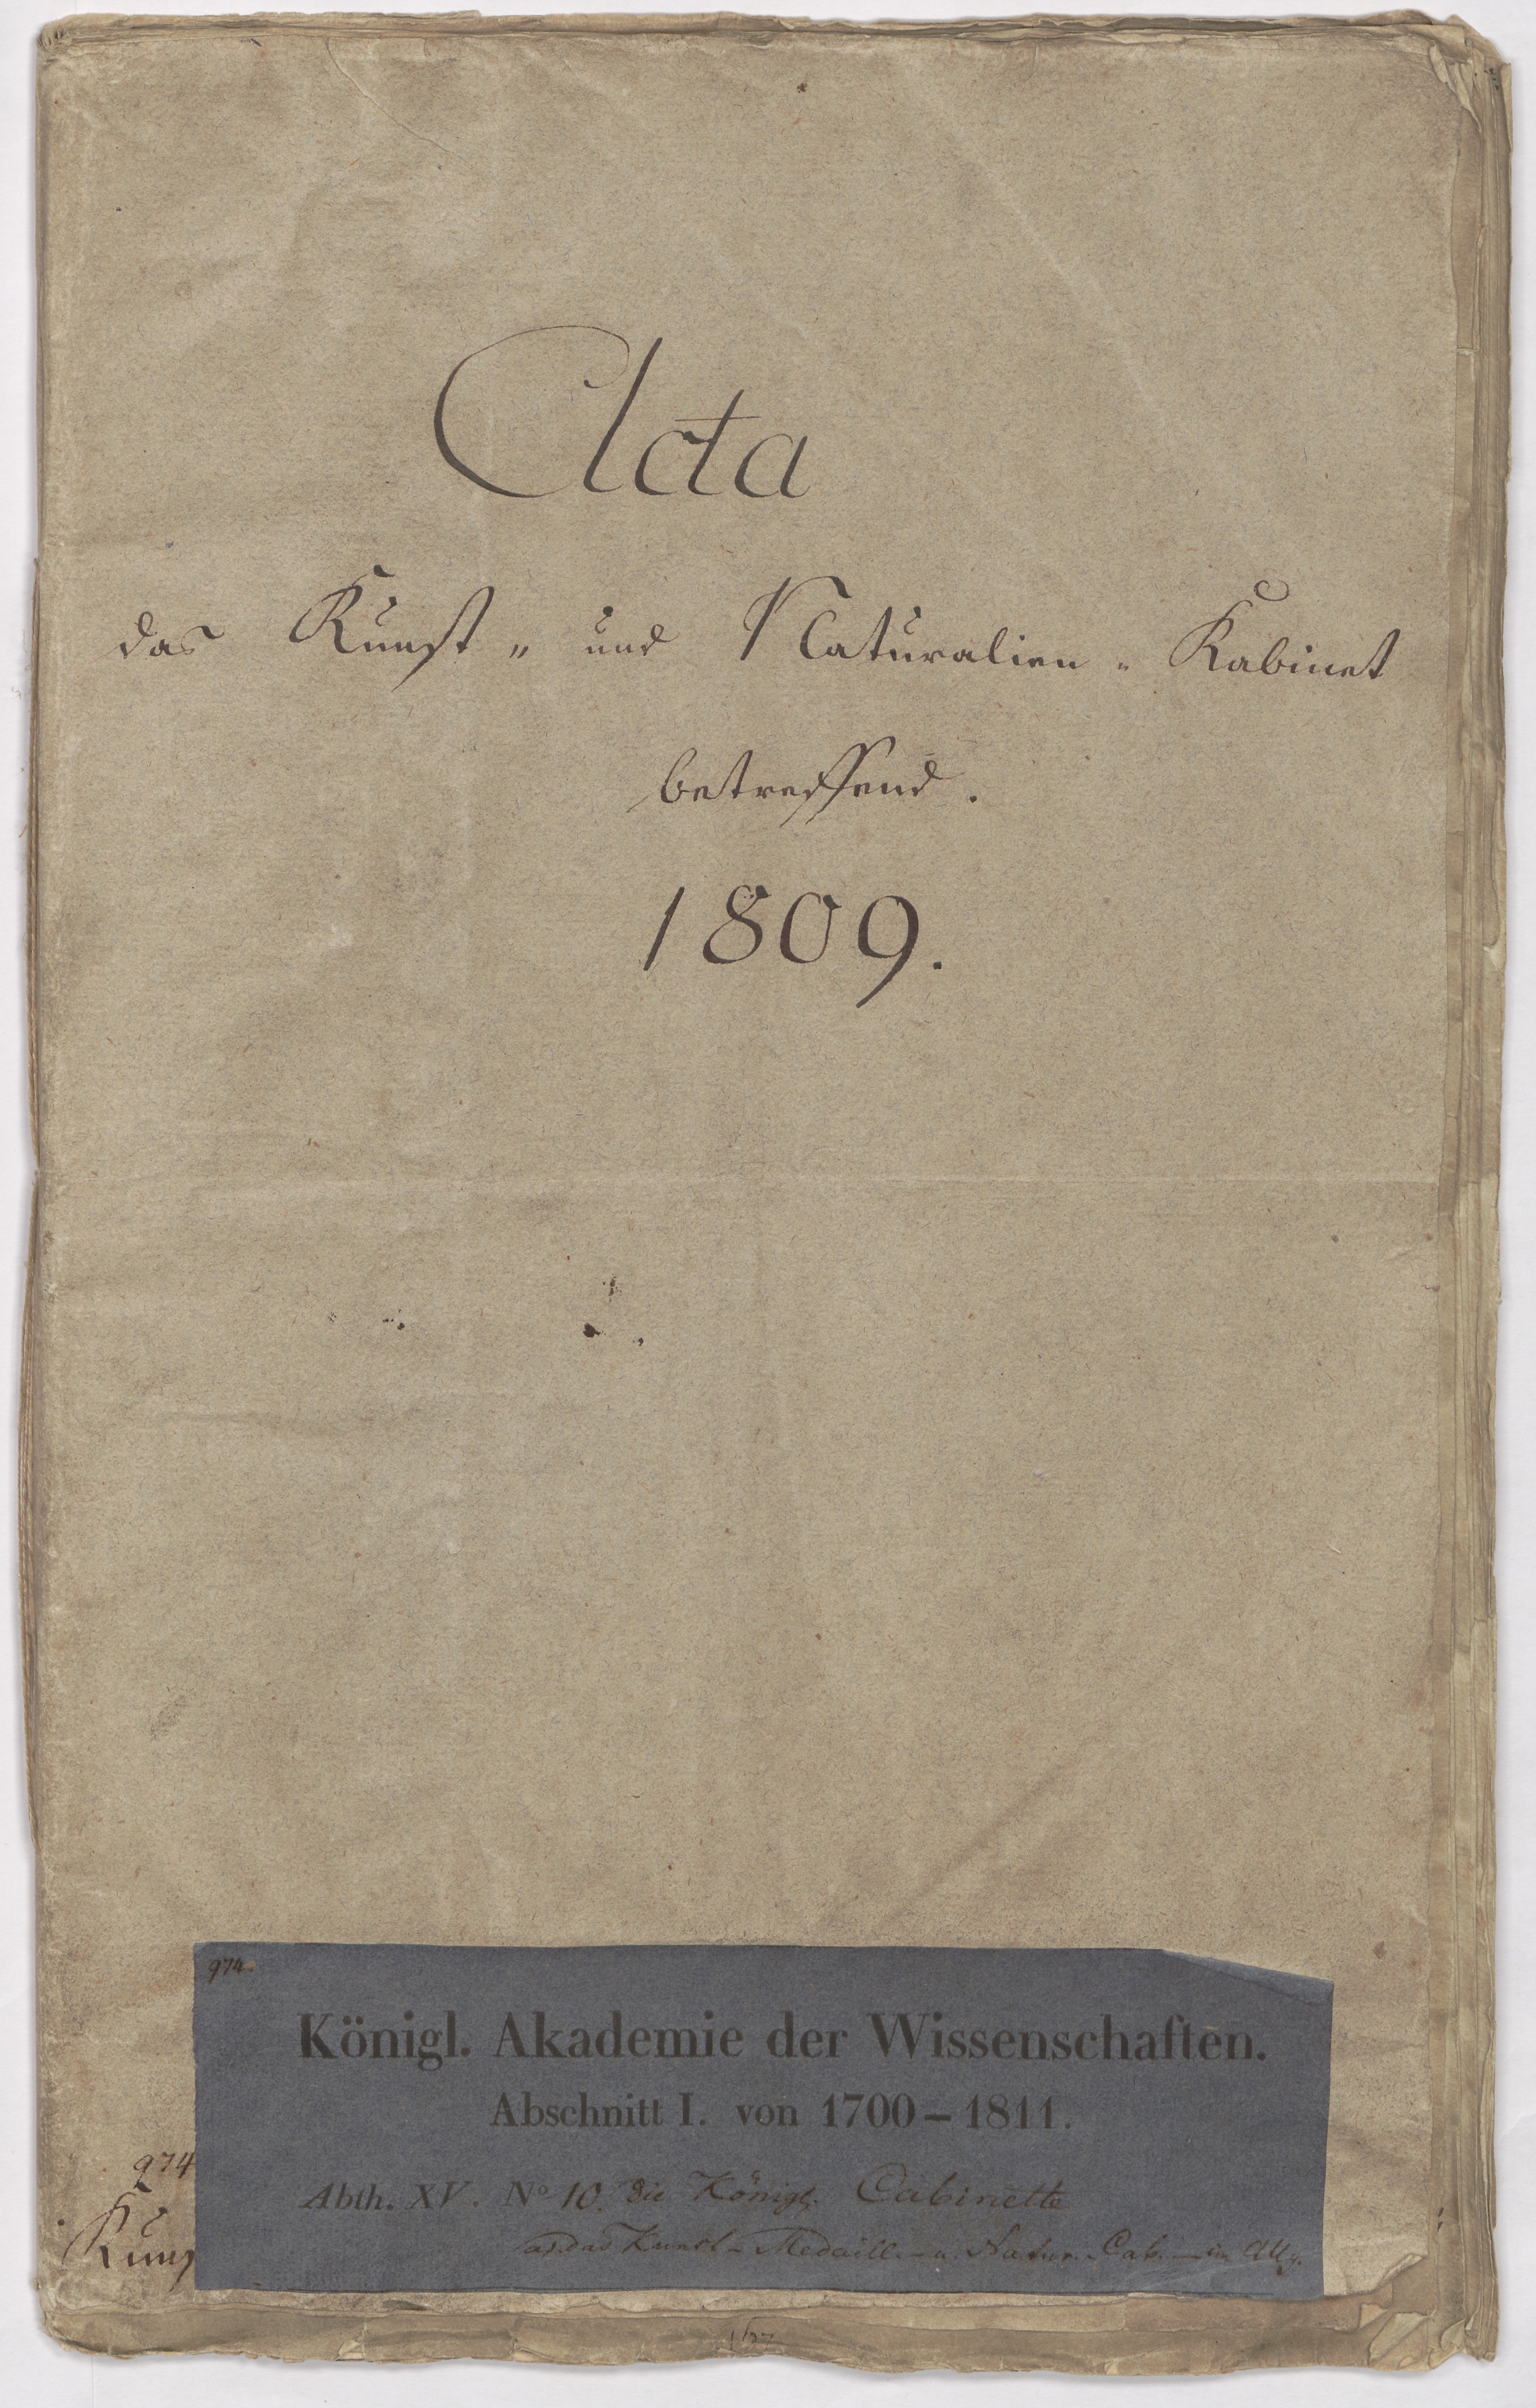 Acta
das Kunst„ und Naturalien„ Kabinet
betreffend.
1809.
974.
Königl. Akademie der Wissenschaften.
Abschnitt I. von 1700–1811.
974
Abth. XV. No 10. die Königl. Cabinette
a, das Kunst- Medaill.- u. Natur. Cab. — im Allg.
Kuns